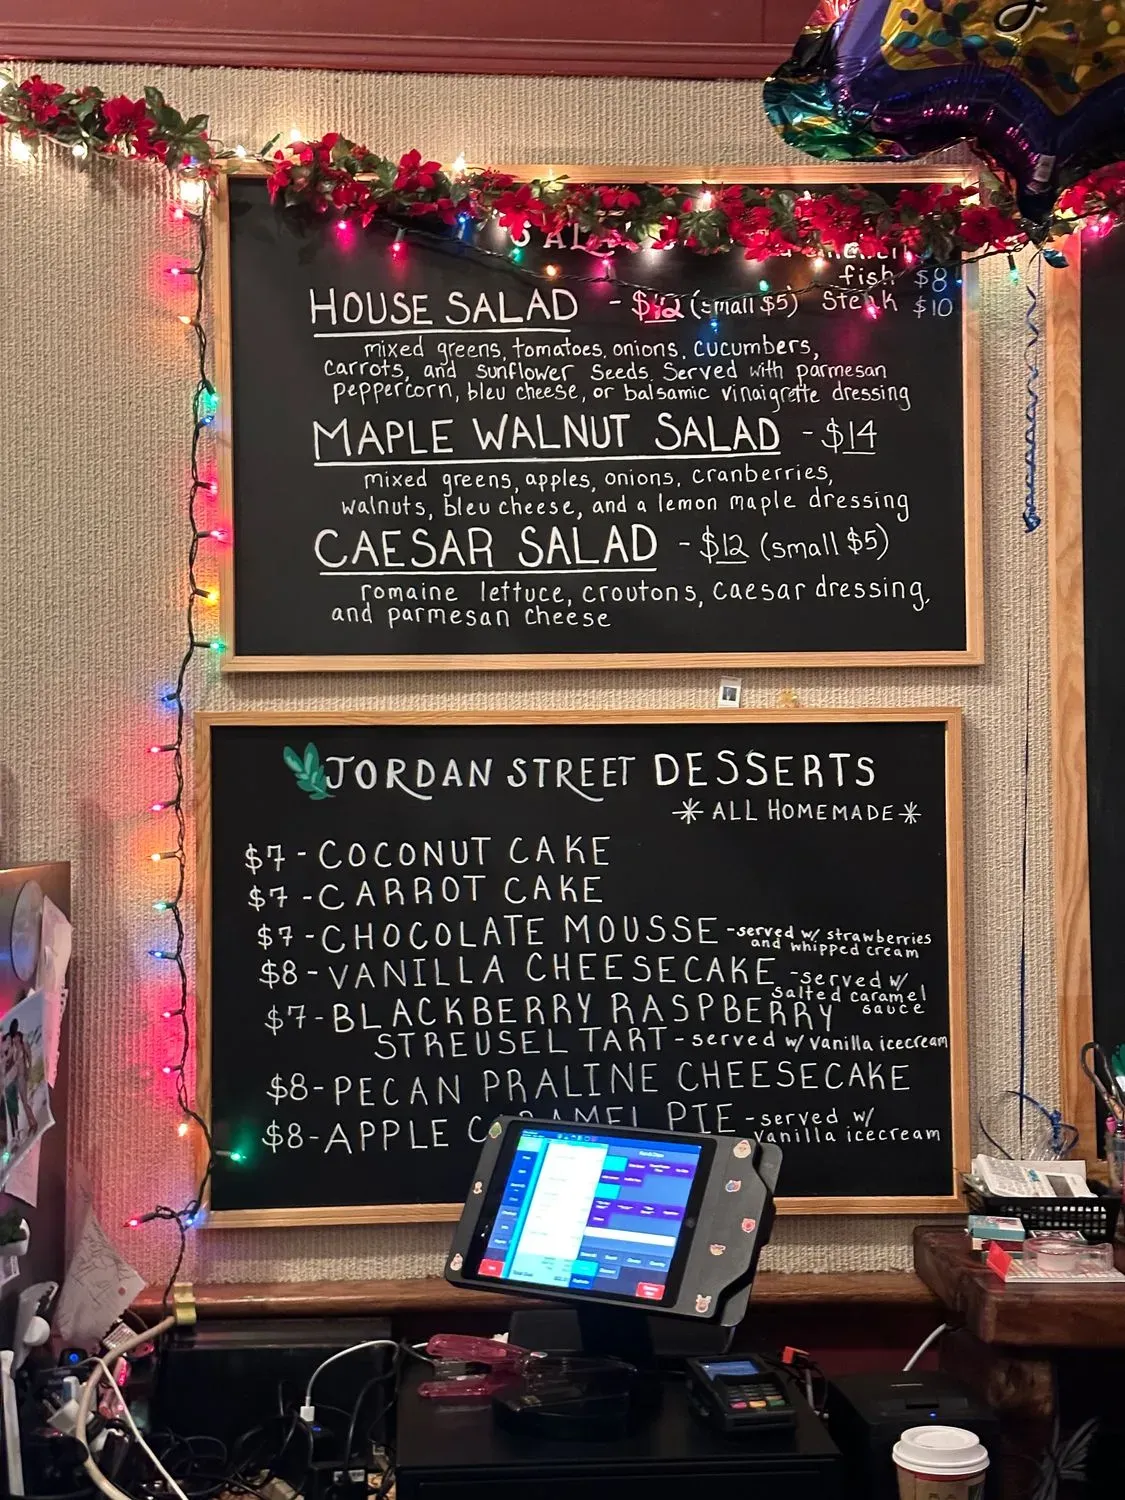 fish $8
HOUSE SALAD - $12 (small $5) Steak $10
mixed greens, tomatoes, onions, cucumbers,
carrots, and sunflower seeds. Served with parmesan
peppercorn, bleu cheese, or balsamic vinaigrette dressing
MAPLE WALNUT SALAD - $14
mixed greens, apples, onions, cranberries,
walnuts, bleu cheese, and a lemon maple dressing
CAESAR SALAD - $12 (small $5)
romaine lettuce, croutons, caesar dressing,
and parmesan cheese
JORDAN STREET DESSERTS
* ALL HOMEMADE *
$7 - COCONUT CAKE
$7 - CARROT CAKE
$7 - CHOCOLATE MOUSSE - served w/ strawberries
and whipped cream
$8 - VANILLA CHEESECAKE - served w/
salted caramel
sauce
$7 - BLACKBERRY RASPBERRY
STREUSEL TART - served w/ vanilla icecream
$8 - PECAN PRALINE CHEESECAKE
$8 - APPLE CARAMEL PIE - served w/
vanilla icecream